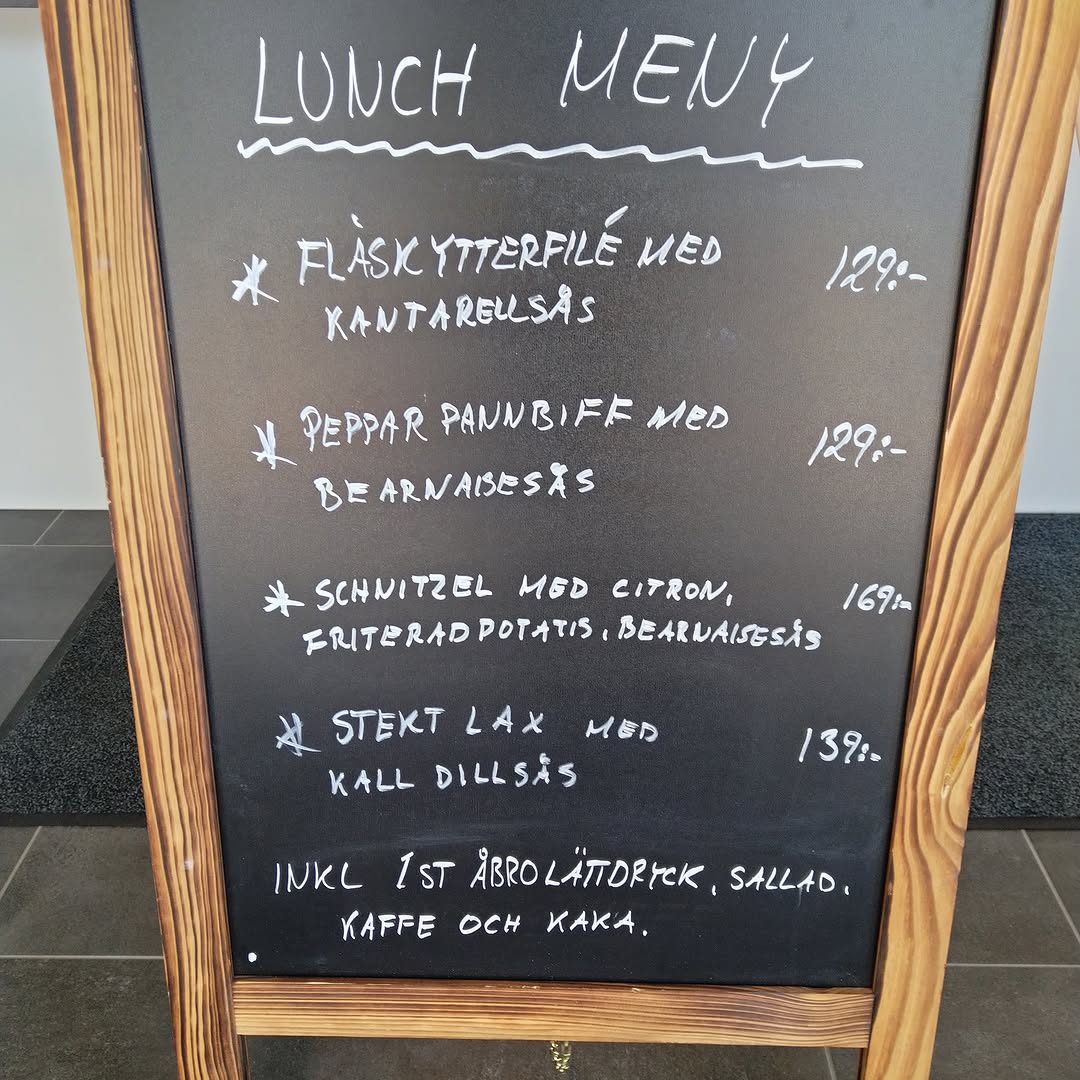 LUNCH MENY
* FLÄSKYTTERFILÉ MED 129:-
KANTARELLSÅS
* PEPPAR PANNBIFF MED 129:-
BEARNAISESÅS
* SCHNITZEL MED CITRON, 169:-
FRITERAD POTATIS, BEARNAISESÅS
* STEKT LAX MED 139:-
KALL DILLSÅS
INKL 1ST ÅBRO LÄTTDRYCK, SALLAD,
KAFFE OCH KAKA.